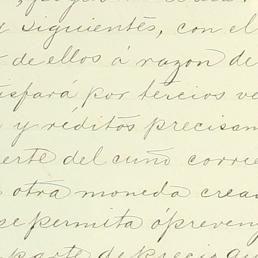 y siguientes, con el
de ellos á razon de
isfará, por tercios ve
y reditos precisam
erte del cuño corrie
otra moneda crea
se permita o preveng
parte de precio qu